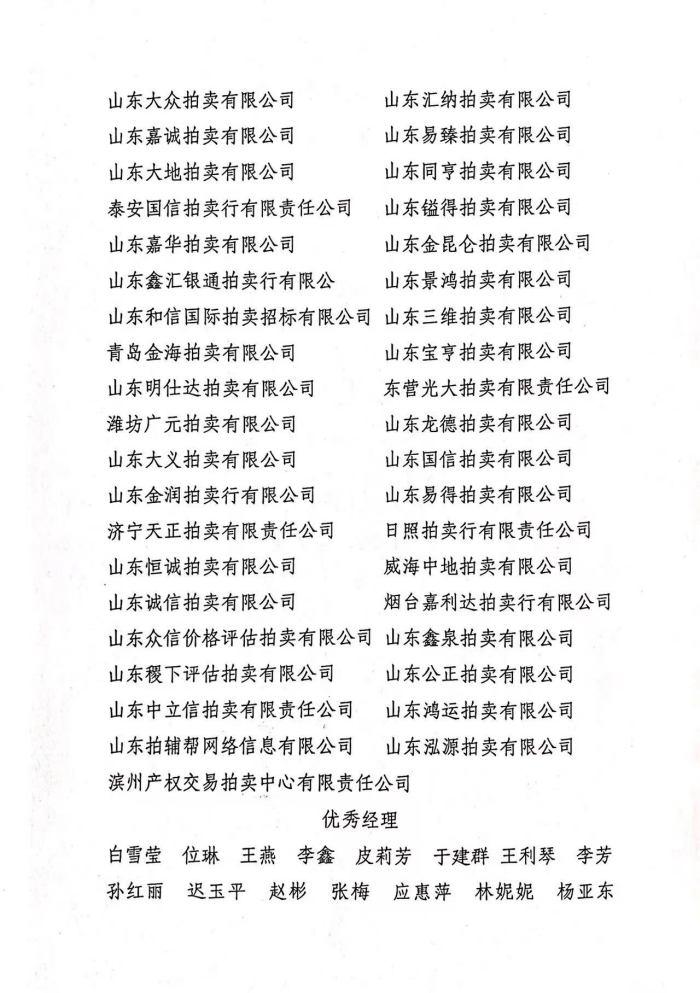 山东大众拍卖有限公司 山东汇纳拍卖有限公司
山东嘉诚拍卖有限公司 山东易臻拍卖有限公司
山东大地拍卖有限公司 山东同亨拍卖有限公司
泰安国信拍卖行有限责任公司 山东镒得拍卖有限公司
山东嘉华拍卖有限公司 山东金昆仑拍卖有限公司
山东鑫汇银通拍卖行有限公 山东景鸿拍卖有限公司
山东和信国际拍卖招标有限公司 山东三维拍卖有限公司
青岛金海拍卖有限公司 山东宝亨拍卖有限公司
山东明仕达拍卖有限公司 东营光大拍卖有限责任公司
潍坊广元拍卖有限公司 山东龙德拍卖有限公司
山东大义拍卖有限公司 山东国信拍卖有限公司
山东金润拍卖行有限公司 山东易得拍卖有限公司
济宁天正拍卖有限责任公司 日照拍卖行有限责任公司
山东恒诚拍卖有限公司 威海中地拍卖有限公司
山东诚信拍卖有限公司 烟台嘉利达拍卖行有限公司
山东众信价格评估拍卖有限公司 山东鑫泉拍卖有限公司
山东稷下评估拍卖有限公司 山东公正拍卖有限公司
山东中立信拍卖有限责任公司 山东鸿运拍卖有限公司
山东拍辅帮网络信息有限公司 山东泓源拍卖有限公司
滨州产权交易拍卖中心有限责任公司
优秀经理
白雪莹 位琳 王燕 李鑫 皮莉芳 于建群 王利琴 李芳
孙红丽 迟玉平 赵彬 张梅 应惠萍 林妮妮 杨亚东